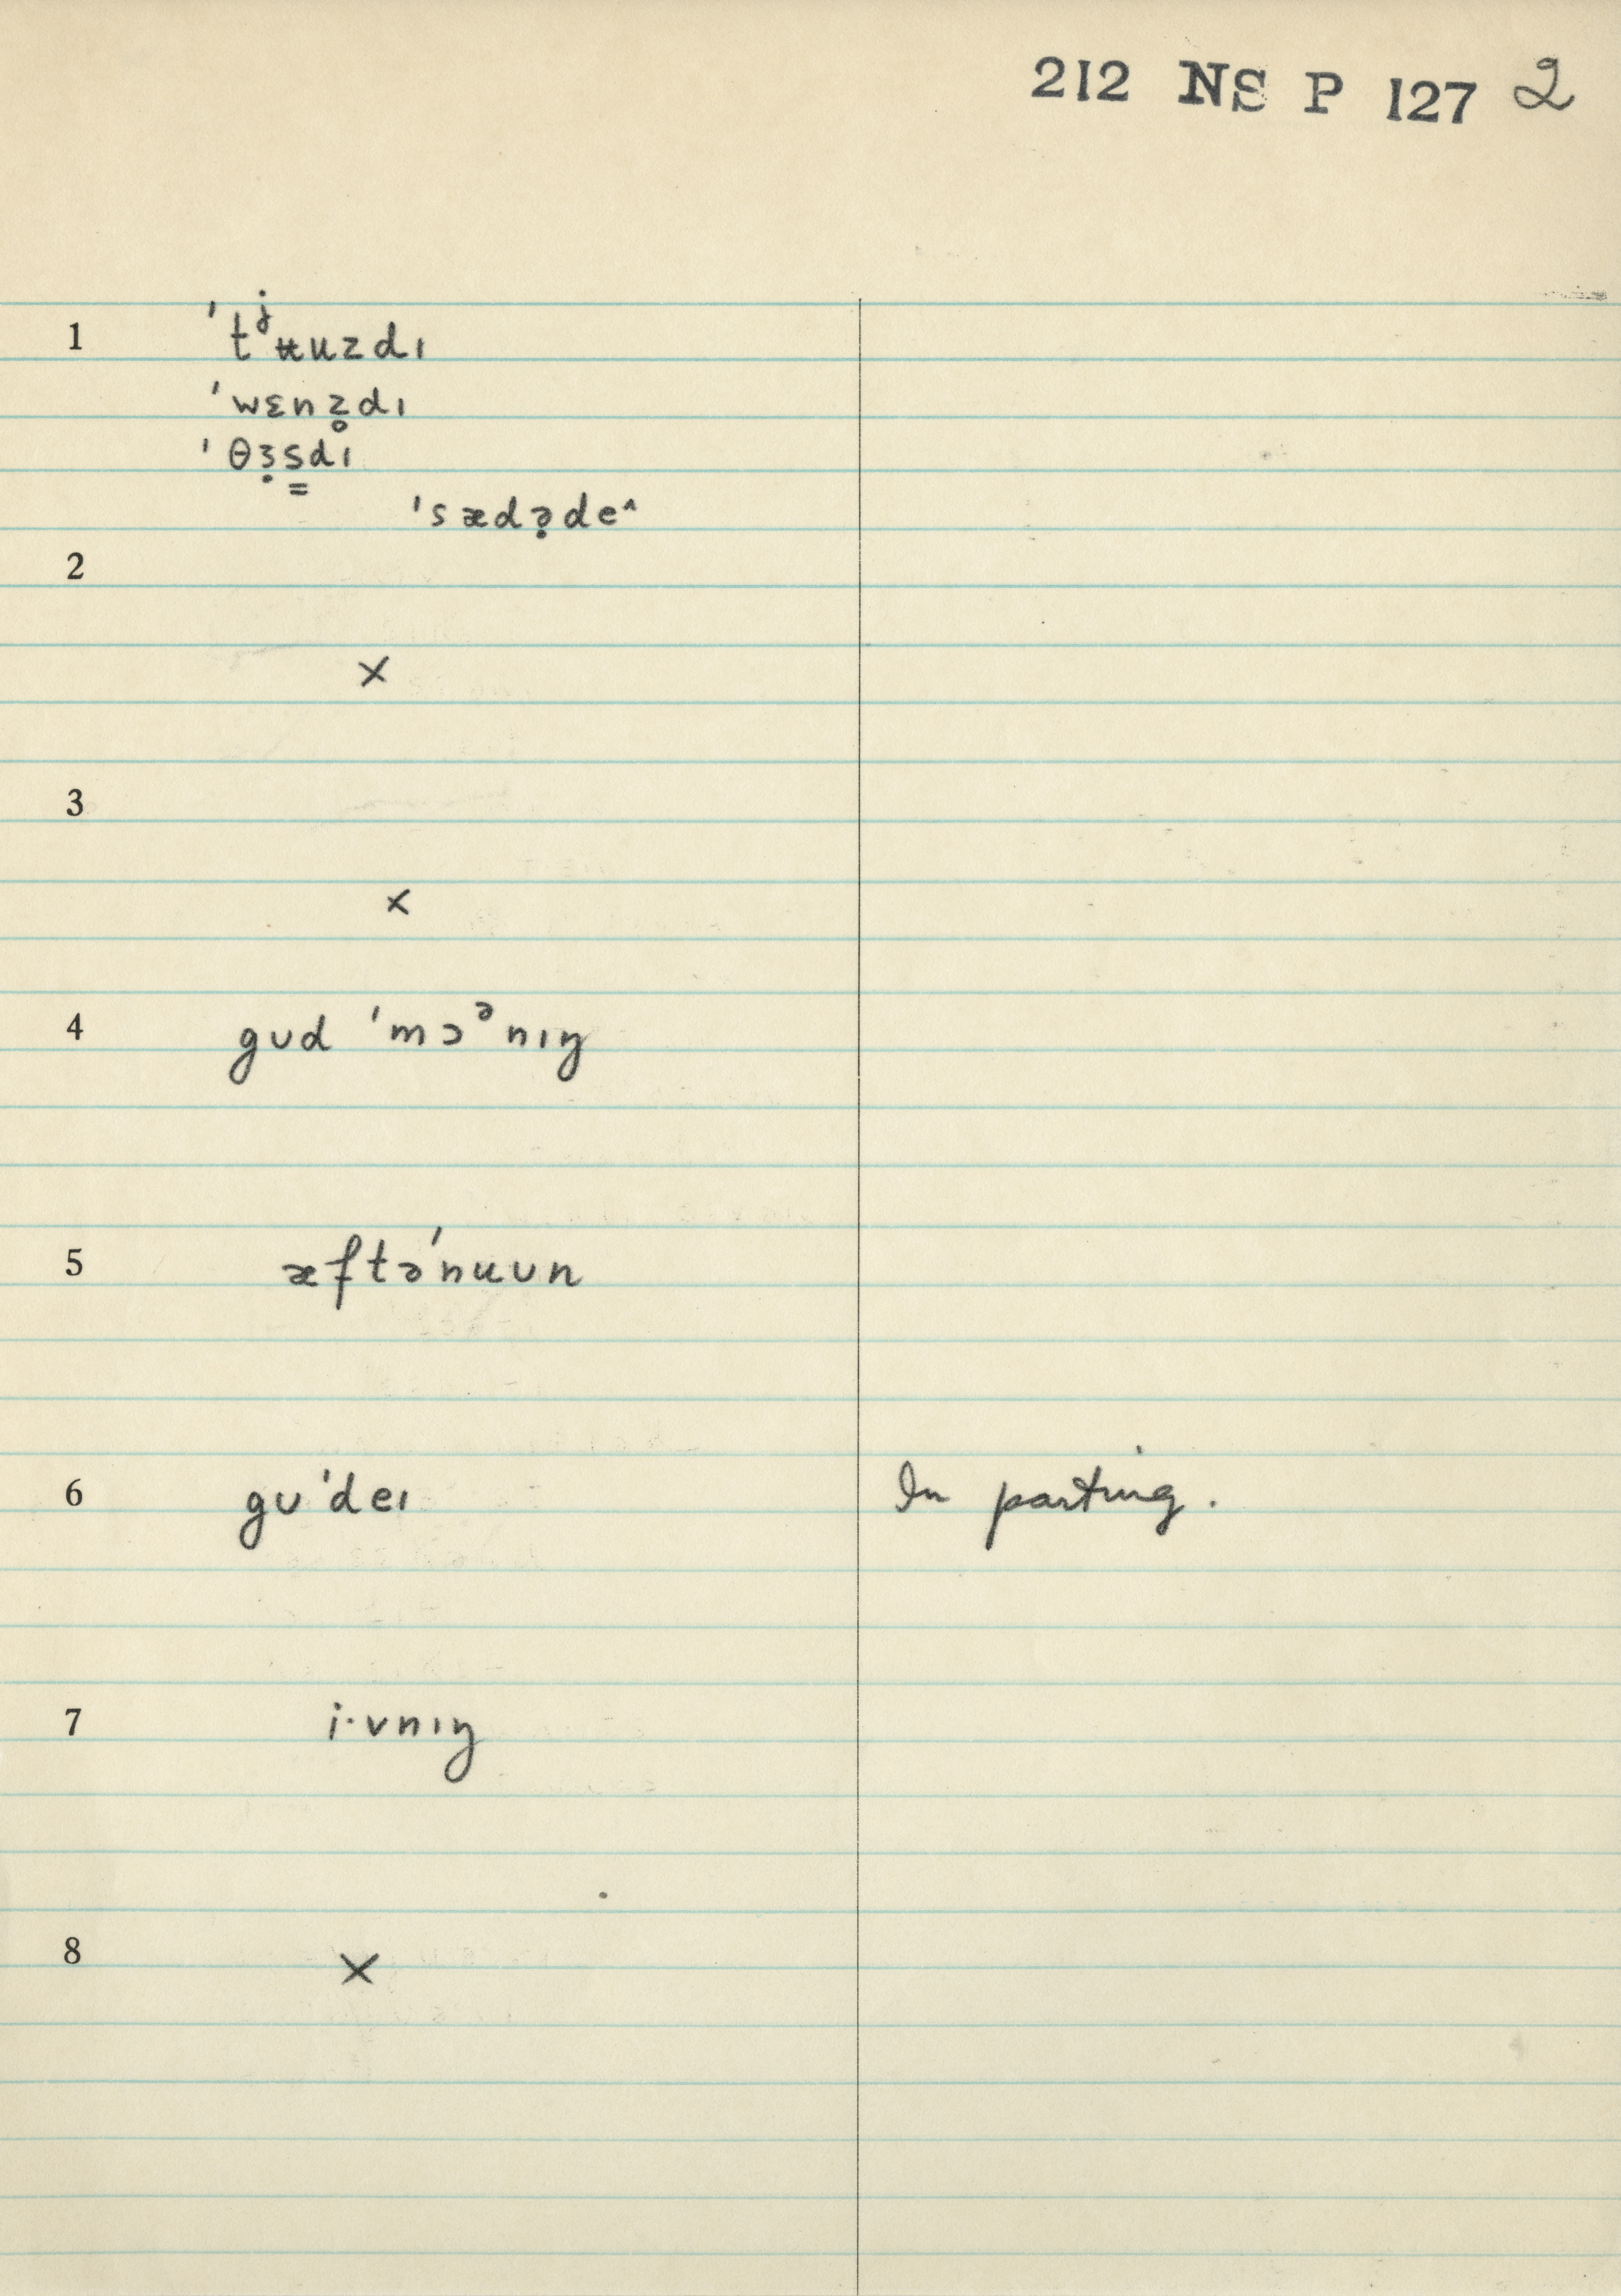 212 NS P 127 2
1 ˈtʲʉuzdɪ
ˈwɛnz̥dɪ
ˈθɜ̣s̳dɪ
ˈsædə̣de^
2
×
3
×
4 gʊd ˈmɔᵊnɪŋ
5 æftəˈnuʊn
6 gʊˈdeɪ In parting.
7 i·vnɪŋ
8 ×